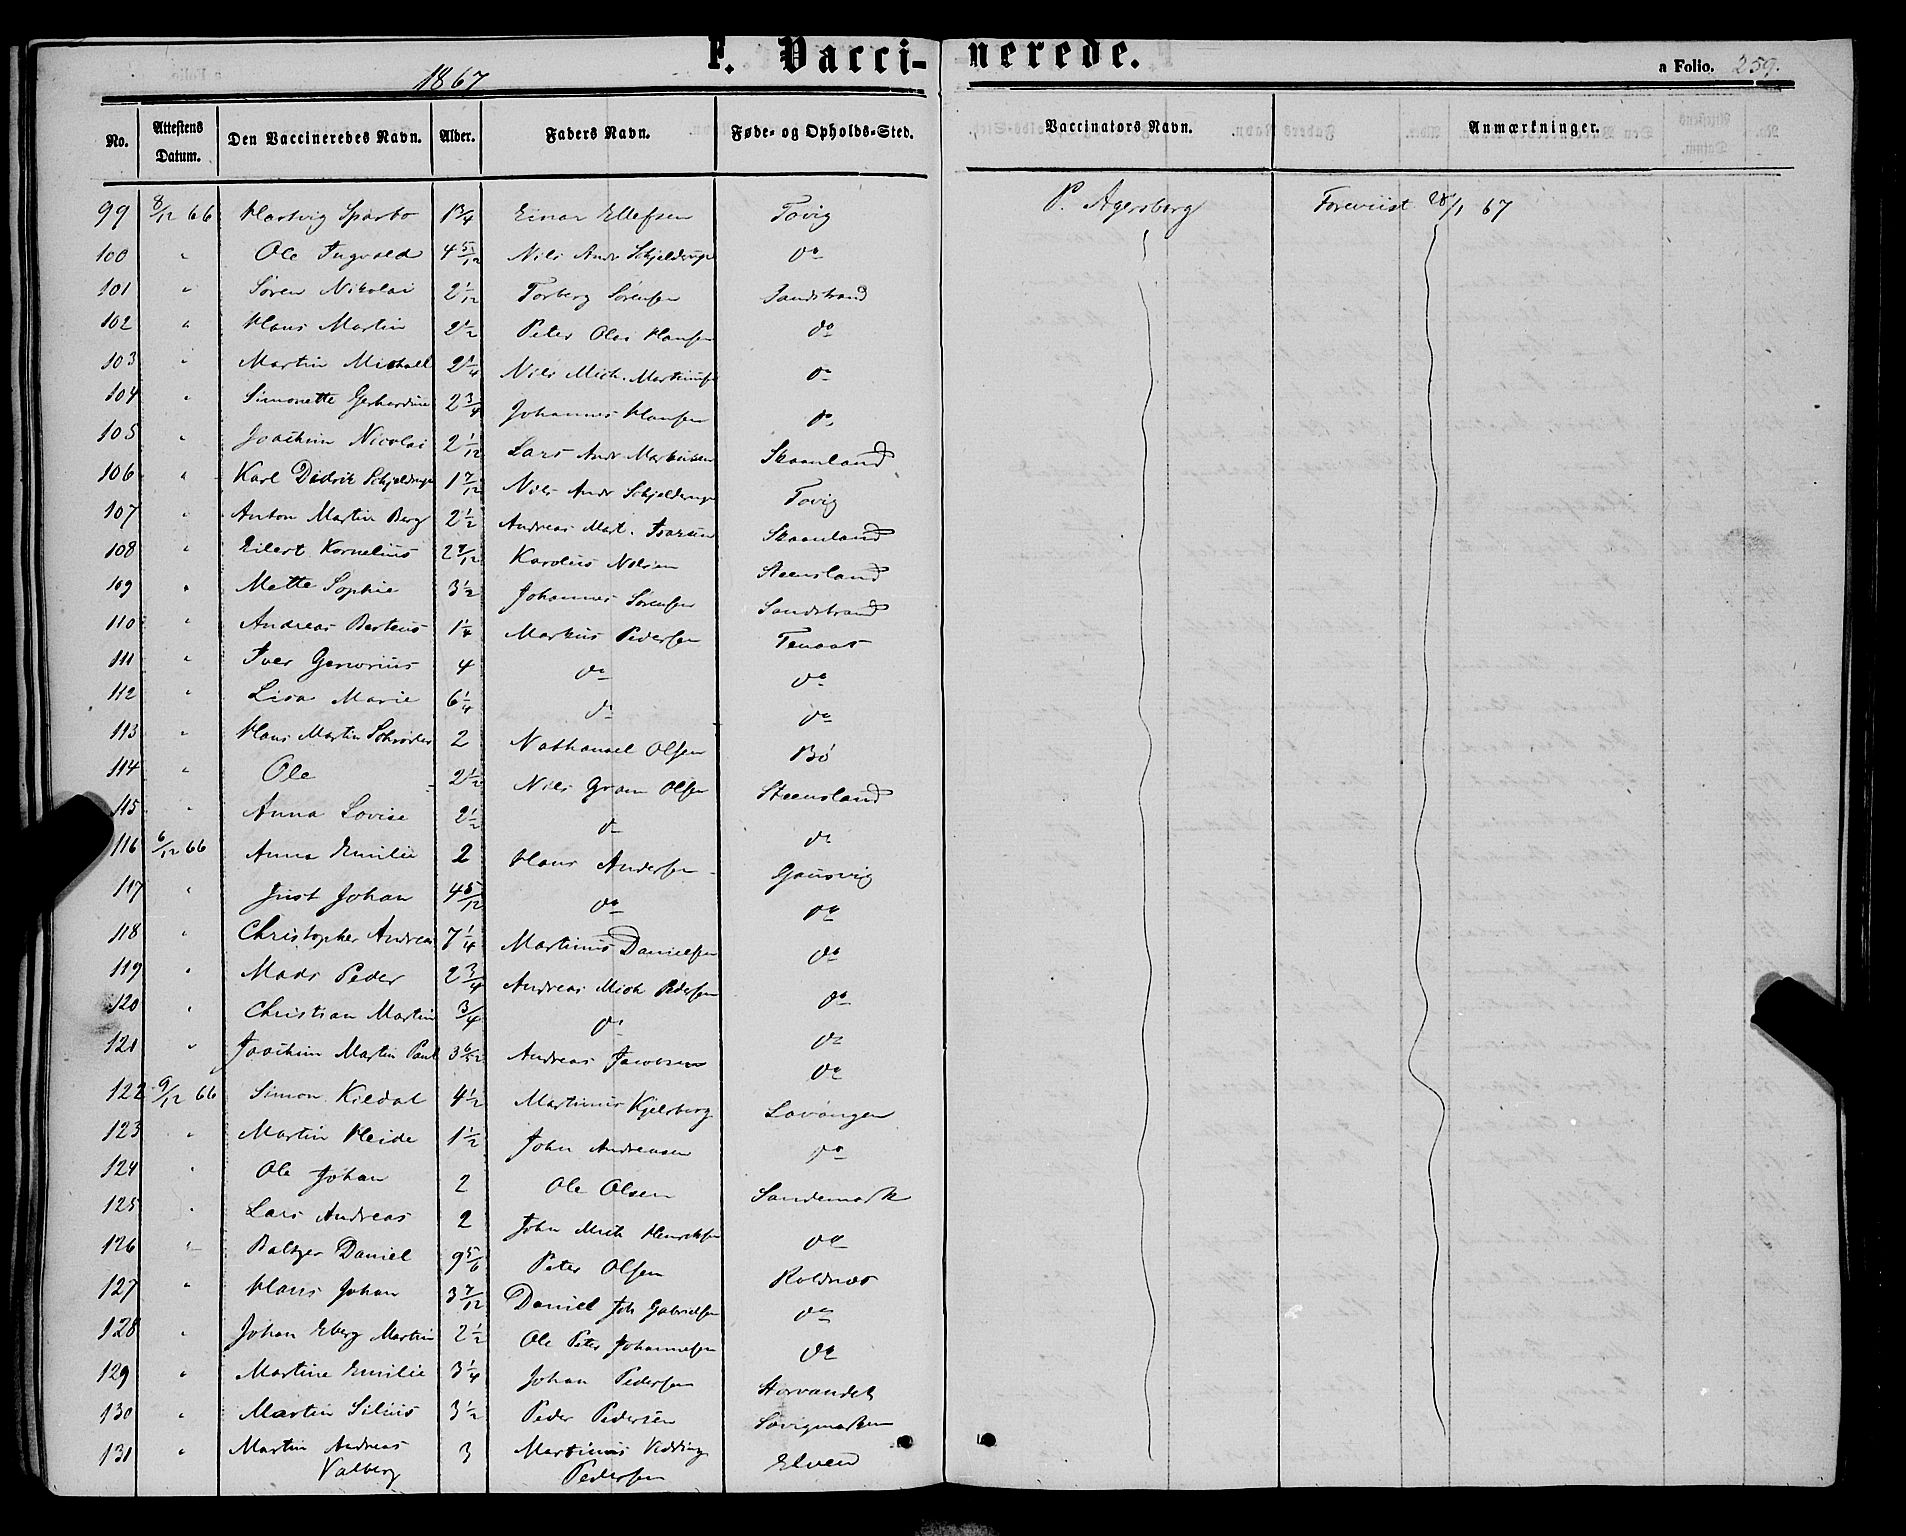 F. Vaccinerede.
a Folio. 259.
1867
No. Attestens Datum. Den Vaccineredes Navn. Alder. Faders Navn. Føde- og Opholds-Sted. Vaccinators Navn. Anmærkninger.
99 8/12 66 Hartvig Sparbo 1 3/4 Einar Ellefsen Tovig P. Agersborg Foreviist 28/1 67
100 " Ole Ingvald 4 5/12 Nils Andr Schjelderup do
101 " Søren Nikolai 2 1/12 Torberg Sørensen Sandstrand
102 " Hans Martin 2 1/2 Peter Olai Hansen do
103 " Martin Michall 2 1/4 Nils Mich. Martinuss do
104 " Simonette Gerhardine 2 3/4 Johannes Hansen do
105 " Joachim Nicolai 2 1/12 Lars Andr Markussen Skaanland
106 " Karl Didrik Schjelderup 1 7/12 Nils Andr Schjelderup Tovig
107 " Anton Martin Berg 2 1/2 Andreas Mart. Ivarsen Skaanland
108 " Eilert Kornelius 2 7/12 Karolus Nilsen Steensland
109 " Mette Sophie 3 1/2 Johannes Sørensen Sandstrand
110 " Andreas Berteus 1 1/4 Markus Pedersen Tenaas
111 " Iver 4 do do
112 " Lisa Marie 6 1/4 do do
113 " Hans Martin Schrøder 2 Nathanael Olsen Bø
114 " Ole 2 1/2 Nils Gram Olsen Steensland
115 " Anna Lovise 2 1/2 do do
116 6/12 66 Anna Emilie 2 Hans Andersen Gausvig
117 " Just Johan 4 5/12 do do
118 " Christopher Andreas 7 1/4 Martinus Danielsen do
119 " Mads Peder 2 3/4 Andreas Mich Pedersen do
120 " Christian Martin 3/4 do do
121 " Joachim Martin Paul 3 6/12 Andreas Jacobsen do
122 9/12 66 Simon Kildal 4 1/2 Martinus Kjelsberg Lavangen
123 " Martin Heide 1 1/2 John Andreasen do
124 " Ole Johan 2 Ole Olsen Sandemark
125 " Lars Andreas 2 John Mich Henriksen do
126 " Baltzer Daniel 9 5/6 Peter Olsen Roldnæs
127 " Hans Johan 3 7/12 Daniel Joh Gabrielsen do
128 " Johan Eberg Martin 2 1/2 Ole Peter Johannesen do
129 " Martine Emilie 3 1/4 Johan Pedersen Storvandet
130 " Martin Silius 3 1/2 Peder Pedersen Sovigmarken
131 " Martin Andreas 3 Martinus Vidding Elven
Valberg Pedersen